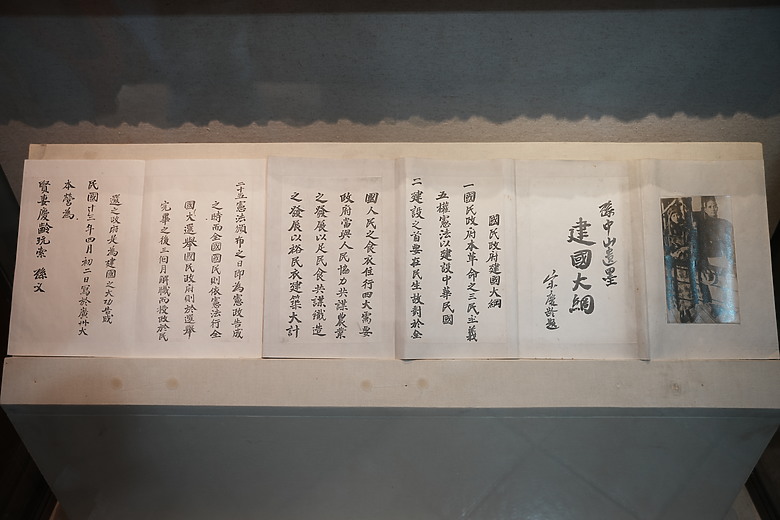 孫中山遺墨
建國大綱
宋慶齡題
國民政府建國大綱
一國民政府本革命之三民主義
五權憲法以建設中華民國
二建設之首要在民生故對於全
國人民之食衣住行四大需要
政府當與人民協力共謀農業
之發展以足民食共謀織造
之發展以裕民衣建築大計
二十五憲法頒布之日即為憲政告成
之時而全國國民則依憲法行全
國大選舉國民政府則於選舉
完畢之後三個月解職而授政於民
選之政府是為建國之大功告成
民國十三年四月初二日寫於廣州大
本營為
賢妻慶齡玩索 孫文